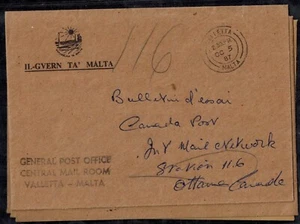 116
VALLETTA
OC 5
87
MALTA
IL-GVERN TA' MALTA
Bulletin d'essai
Canada Post
Int Mail Network
Station 116
Ottawa Canada
GENERAL POST OFFICE
CENTRAL MAIL ROOM
VALLETTA - MALTA